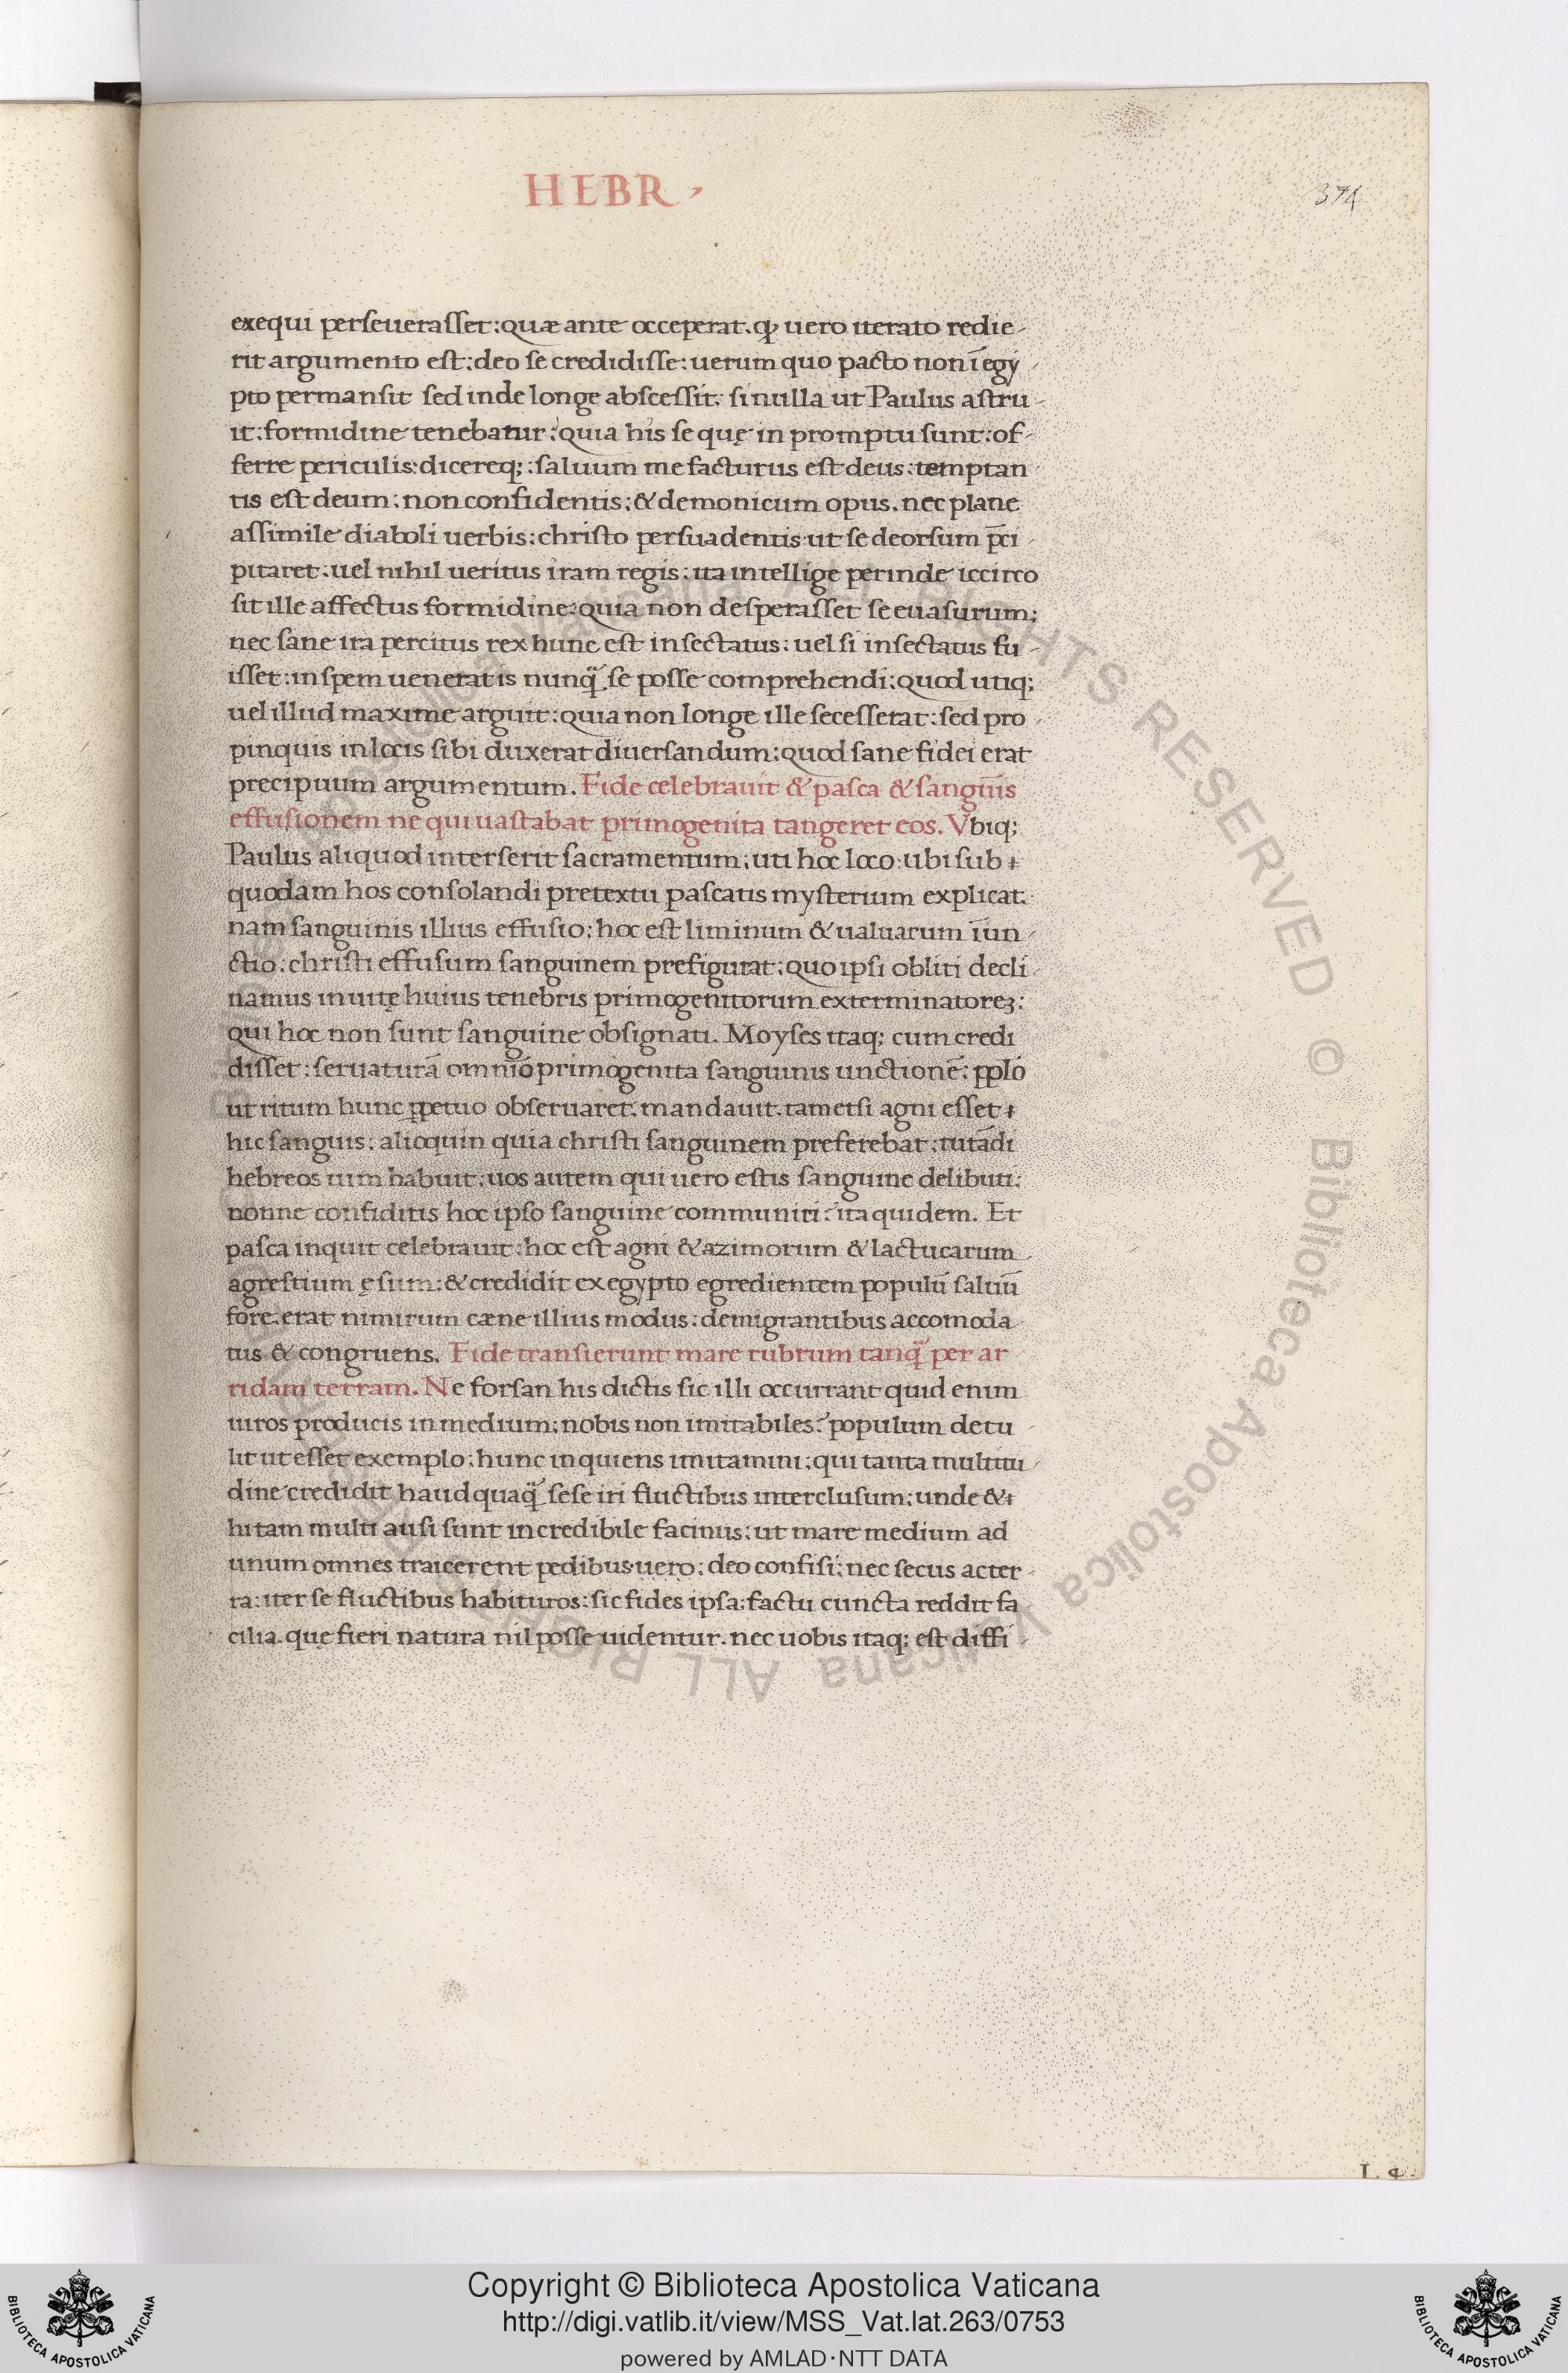 HEBR
374
exequi perseuerasset: quæ ante occeperat. ꝙ uero iterato redie-
rit argumento est: deo se credidisse: uerum quo pacto non ī egy-
pto permansit sed inde longe abscessit. si nulla ut Paulus astru-
it: formidine tenebatur: quia his se quę in promptu sunt: of-
ferre periculis: dicereq;: saluum me facturus est deus: temptan-
tis est deum: non confidentis: & demonicum opus. nec plane
assimile diaboli uerbis: christo persuadentis ut se deorsum p̄ci-
pitaret: uel nihil ueritus iram regis: ita intellige perinde iccirco
sit ille affectus formidine: quia non desperasset se euasurum:
nec sane ira percitus rex hunc est insectatus: uel si insectatus fu-
isset: in spem uenerat is nunq̃ se posse comprehendi: quod utiq;
uel illud maxime arguit: quia non longe ille secesserat: sed pro-
pinquis in locis sibi duxerat diuersandum: quod sane fidei erat
precipuum argumentum. Fide celebrauit & pasca & sanguīs
effusionem ne qui uastabat primogenita tangeret eos. Vbiq;
Paulus aliquod interserit sacramentum: uti hoc loco: ubi sub
quodam hos consolandi pretextu pascatis mysterium explicat.
nam sanguinis illius effusio: hoc est liminum & ualuarum īun-
ctio: christi effusum sanguinem prefigurat: quo ipsi obliti decli-
namus in uitę huius tenebris primogenitorum exterminatoreꝫ:
qui hoc non sunt sanguine obsignati. Moyses itaq; cum credi
disset: seruaturā omnīo primogenita sanguinis unctionē: pplo
ut ritum hunc ꝑpetuo obseruaret. mandauit. tametsi agni esset
hic sanguis: alioquin quia christi sanguinem preferebat: tutādi
hebreos uim habuit: uos autem qui uero estis sanguine delibuti:
nonne confiditis hoc ipso sanguine communiri: ita quidem. Et
pasca inquit celebrauit: hoc est agni & azimorum & lactucarum
agrestium ęsum: & credidit ex egypto egredientem populū saluū
fore. erat nimirum cæne illius modus: demigrantibus accomoda
tus & congruens. Fide transierunt mare rubrum tanq̃ per ar-
ridam terram. Ne forsan his dictis sic illi occurrant quid enim
uiros producis in medium: nobis non imitabiles? populum detu
lit ut esset exemplo: hunc inquiens imitamini: qui tanta multitu-
dine credidit haudquaq̃ sese iri fluctibus interclusum: unde &
hi tam multi ausi sunt incredibile facinus: ut mare medium ad
unum omnes traicerent pedibus uero: deo confisi: nec secus ac ter-
ra: iter se fluctibus habituros: sic fides ipsa: factu cuncta reddit fa-
cilia. quę fieri natura nil posse uidentur. nec uobis itaq; est diffi-
Copyright © Biblioteca Apostolica Vaticana
http://digi.vatlib.it/view/MSS_Vat.lat.263/0753
powered by AMLAD·NTT DATA
BIBLIOTECA APOSTOLICA VATICANA
BIBLIOTECA APOSTOLICA VATICANA